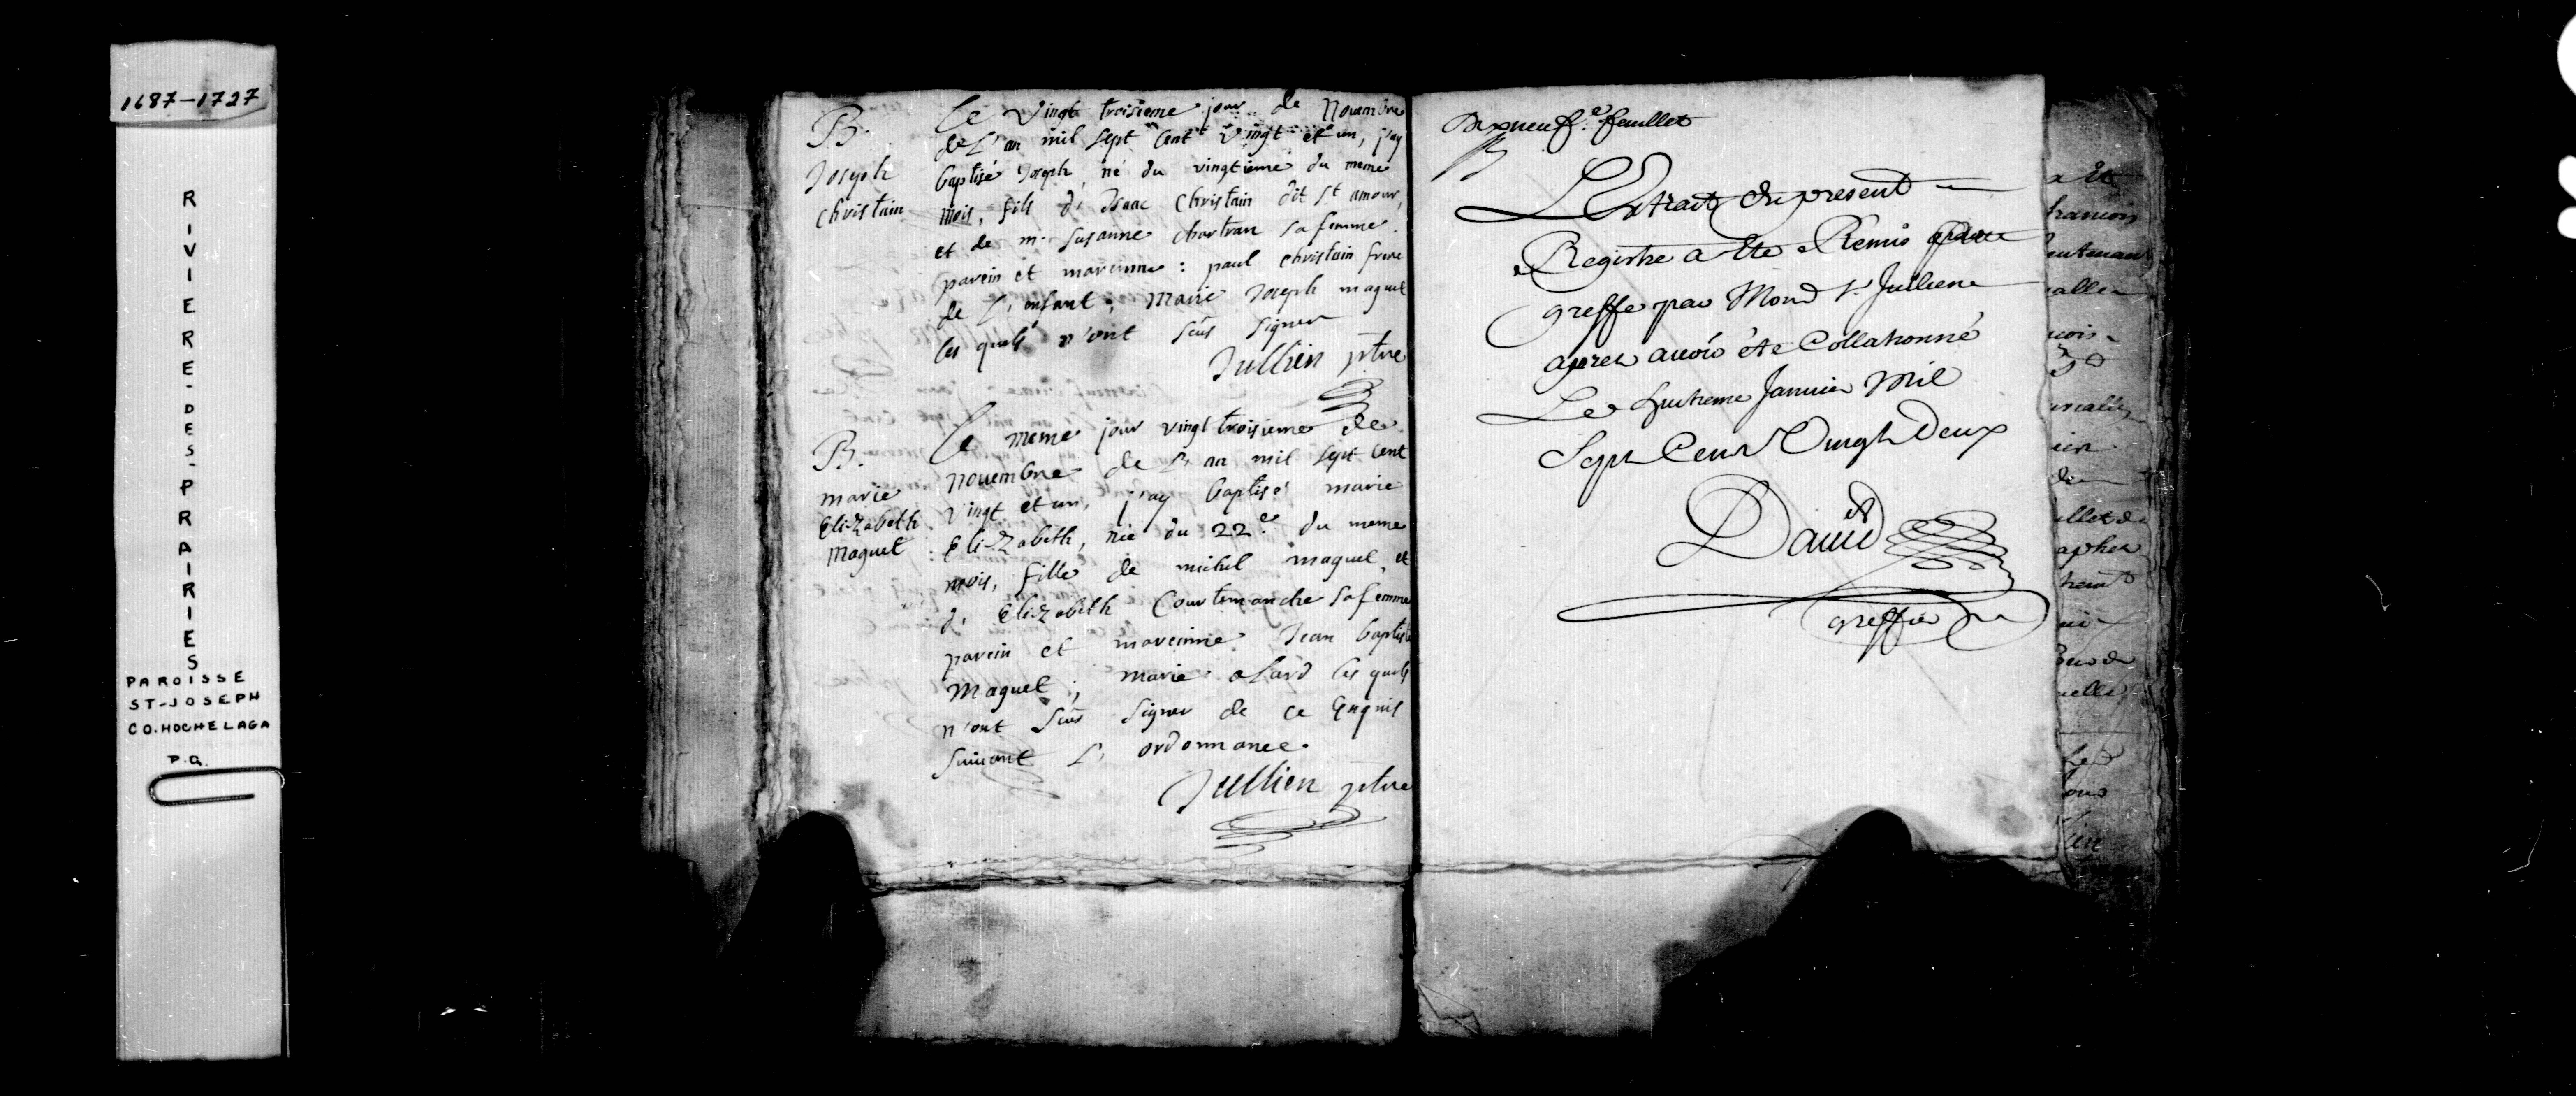 1687-1727
RIVIERE-DES-PRAIRIES
PAROISSE
ST-JOSEPH
CO. HOCHELAGA
P.Q.
B.
Joseph
christain
Le vingt troisieme jour de Novembre
de L'an mil sept cent vingt et un, j'ay
baptisé Joseph, né du vingtieme du meme
mois, fils d'Isaac Christain dit St amour,
et de m. susanne chartran sa femme.
parein et mareinne: paul christain frere
de L'enfant; Marie Joseph maguet
les quels n'ont sçus signer
Jullien ptre
B.
marie
Elizabeth
Maguet
Le meme jour vingt troisieme de
novembre de L'an mil sept cent
vingt et un, j'ay baptisé marie
Elizabeth, née du 22e du meme
mois, fille de michel maguet, et
d'Elizabeth Courtemanche sa femme
parein et mareinne Jean baptiste
Maguet; marie alard les quels
n'ont sçus signer de ce enquis
suivant L'ordonnance.
Jullien ptre
Dixneufe feuillet
L'Extrait du present
Registre a ete Remis
greffe par Mons Jullien
apres avoir été Collationné
Le huitieme Janvier Mil
Sept Cent Vingt Deux
David
greffier